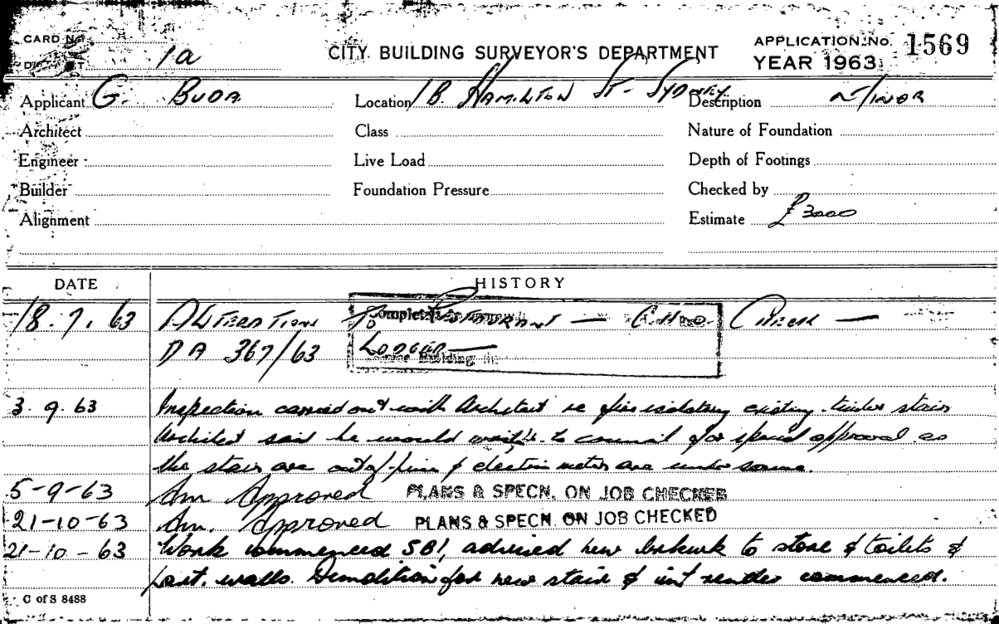 CARD No.
1a
CITY BUILDING SURVEYOR'S DEPARTMENT
APPLICATION No. 1569
YEAR 1963
Applicant G. BUDA
Location 18 HAMILTON ST - SYDNEY
Description MINOR
Architect
Class
Nature of Foundation
Engineer
Live Load
Depth of Footings
Builder
Foundation Pressure
Checked by
Alignment
Estimate £3000
DATE HISTORY
18.7.63 ALTERATIONS TO RESTAURANT —
DA 367/63 LODGED —
3.9.63 Inspection carried out with Architect re fire isolating existing timber stairs
Architect said he would write to council for special approval as
the stairs are out of line & electric meters are under same.
5-9-63 Am Approved PLANS & SPECN. ON JOB CHECKED
21-10-63 Am. Approved PLANS & SPECN. ON JOB CHECKED
21-10-63 Work commenced SBI advised new bwkwk to store & toilets &
part. walls. Demolition for new stair & int render commenced.
C of S 8488